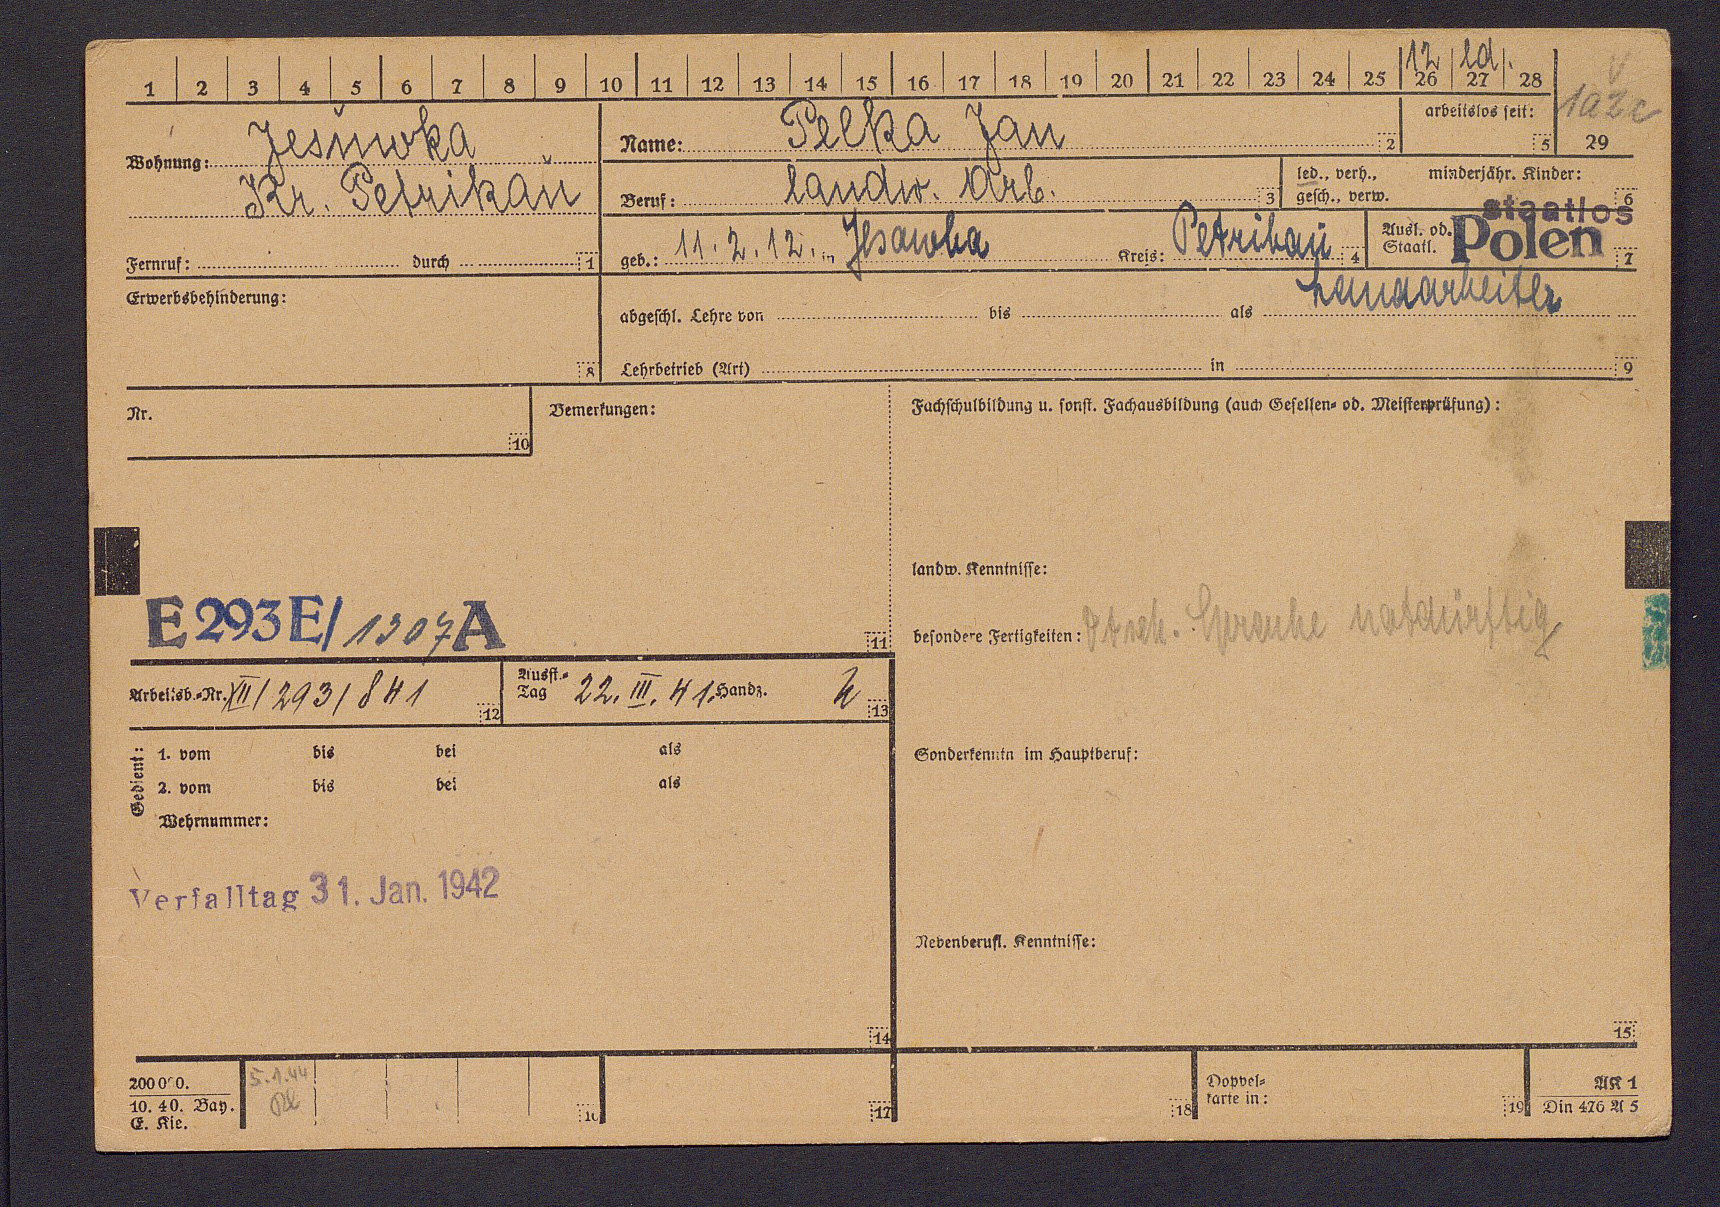 12 ld.
1 2 3 4 5 6 7 8 9 10 11 12 13 14 15 16 17 18 19 20 21 22 23 24 25 26 27 28
1a2c
Wohnung: Jesŭwka
Kr. Petrikaŭ
Fernruf: durch 1
Name: Pelka Jan 2
arbeitslos seit: 5
29
Beruf: landw. Arb. 3
led., verh., gesch., verw.
minderjähr. Kinder: 6
geb.: 11.2.12. in Jesowka Kreis: Petrikau 4
Ausl. od. Staatl. staatlos Polen 7
Erwerbsbehinderung: 8
abgeschl. Lehre von bis als Landarbeiter
Lehrbetrieb (Art) in 9
Nr. 10
Bemerkungen:
Fachschulbildung u. sonst. Fachausbildung (auch Gesellen- od. Meisterprüfung):
landw. Kenntnisse:
E 293 E/ 1307 A
11
besondere Fertigkeiten: Dtsch. Sprache notdürftig
Arbeitsb.-Nr. XII/293/841 12
Ausst.-Tag 22. III. 41. Handz. 13
Gedient:
1. vom bis bei als
2. vom bis bei als
Wehrnummer:
Sonderkenntn im Hauptberuf:
Verfalltag 31. Jan. 1942
Nebenberufl. Kenntnisse:
14
15
200000.
10. 40. Bay.
E. Kie.
5.1.44
16
17
18
Doppel-
karte in: 19
AK 1
Din 476 A 5